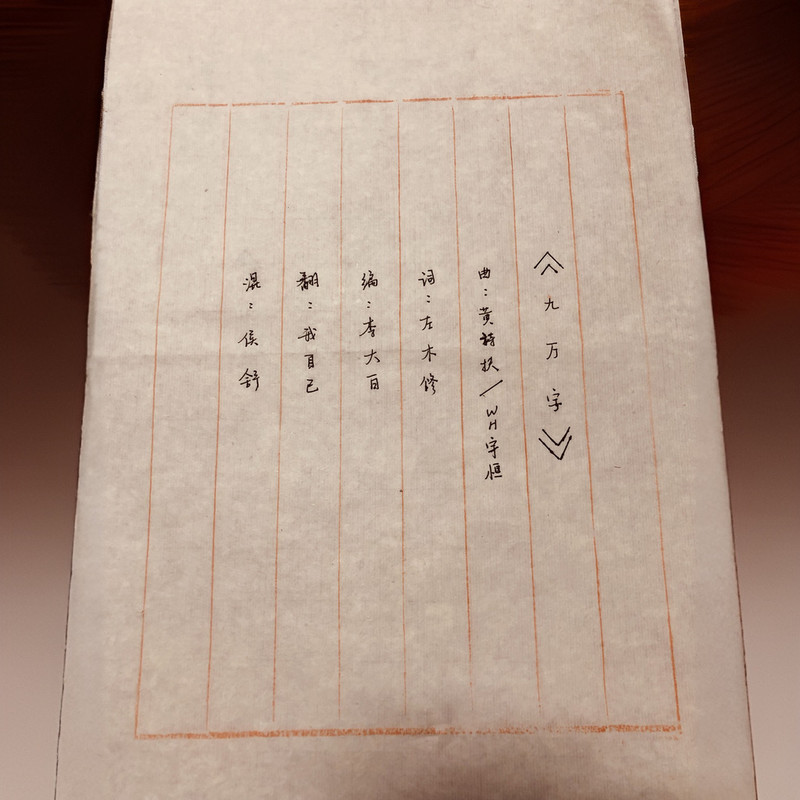 《九万字》
曲：黄诗扶／WH宇恒
词：左木修
编：李大白
翻：我自己
混：侯舒